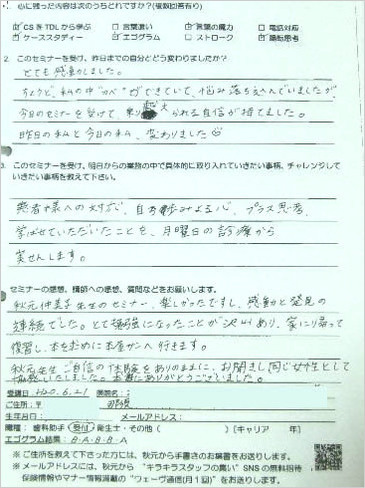 1. 心に残った内容は次のうちどれですか?(複数回答有り)
☑ CSをTDLから学ぶ □ 言葉遣い ☑ 言葉の魔力 □ 電話対応
☑ ケーススタディー ☑ エゴグラム □ ストローク ☑ 陽転思考
2. このセミナーを受け、昨日までの自分とどう変わりましたか?
とても感動しました。
ちょうど、私の中"カベ"ができていて、悩み落ち込んでいましたが、
今日のセミナーを受けて、乗り越えられる自信が持てました。
昨日の私と今日の私、変わりました☺
3. このセミナーを受け、明日からの業務の中で具体的に取り入れていきたい事柄、チャレンジして
いきたい事柄を教えて下さい。
患者様への対応、自ら歩みよる心、プラス思考、
学ばせていただいたことを、月曜日の診療から
実せんします。
セミナーの感想、講師への感想、質問などをお願いします。
秋元 先生のセミナー、楽しかったですし、感動と発見の
連続でした。とても勉強になったことが沢山あり、家に帰って
復習し、本を求めに本屋さんへ行きます。
秋元先生ご自信の体験をありのままに、お聞きし同じ女性として
感動いたしました。本当にありがとうございました。
受講日 2010.6.21 医院名:
ご住所:〒
生年月日: メールアドレス:
職種: 歯科助手・受付・衛生士・その他( )【キャリア 年】
エゴグラム結果: B-A-B-B-A
※ ご住所を教えて下さった方には、秋元から手書きのお葉書をお送りします。
※ メールアドレスには、秋元から "キラキラスタッフの集い" SNSの無料招待
保険情報やマナー情報満載の「ウェーヴ通信(月1回)」をお送りします。